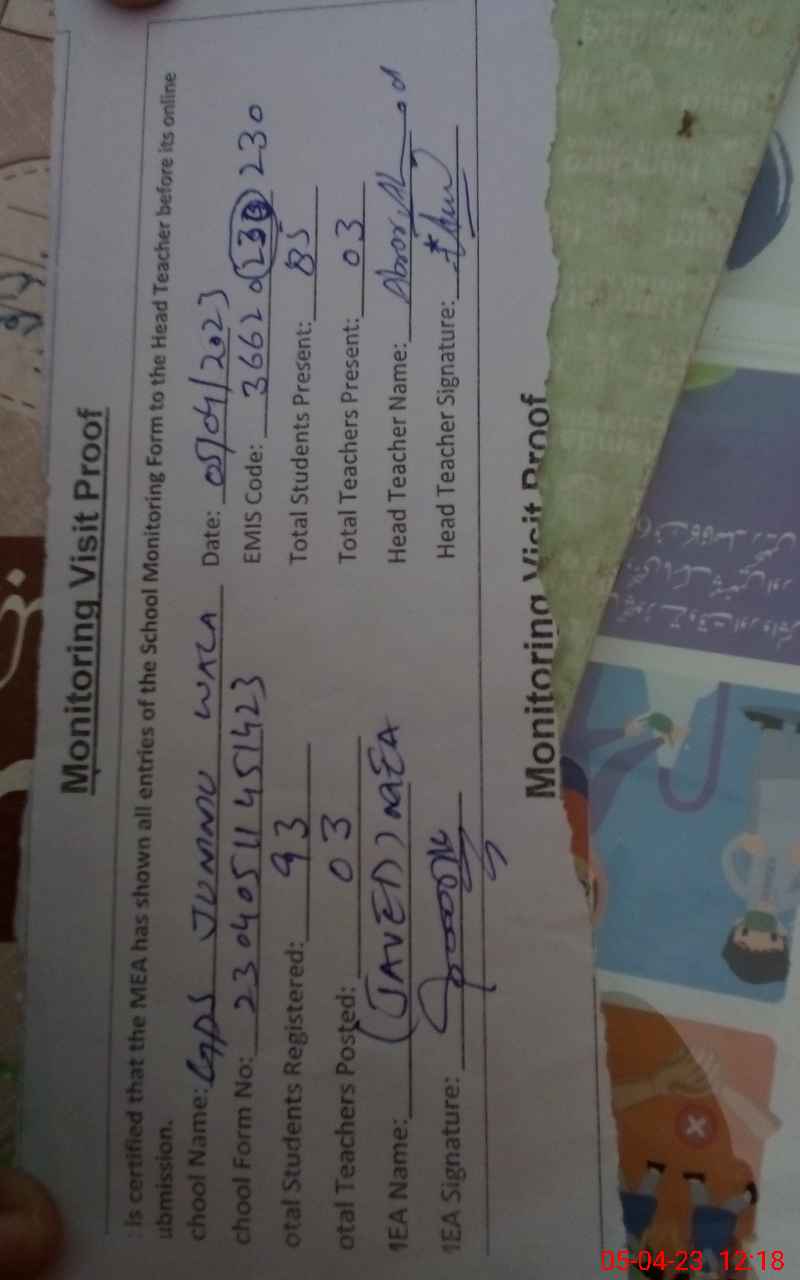 Monitoring Visit Proof
: Is certified that the MEA has shown all entries of the School Monitoring Form to the Head Teacher before its online
ubmission.
chool Name: GPS JUMMU WALA Date: 05/04/2023
chool Form No: 230405114 51423 EMIS Code: 36620 230 230
otal Students Registered: 93 Total Students Present: 85
otal Teachers Posted: 03 Total Teachers Present: 03
1EA Name: (JAVED) MEA Head Teacher Name:
1EA Signature: Head Teacher Signature:
Monitoring Visit Proof
05-04-23 12:18